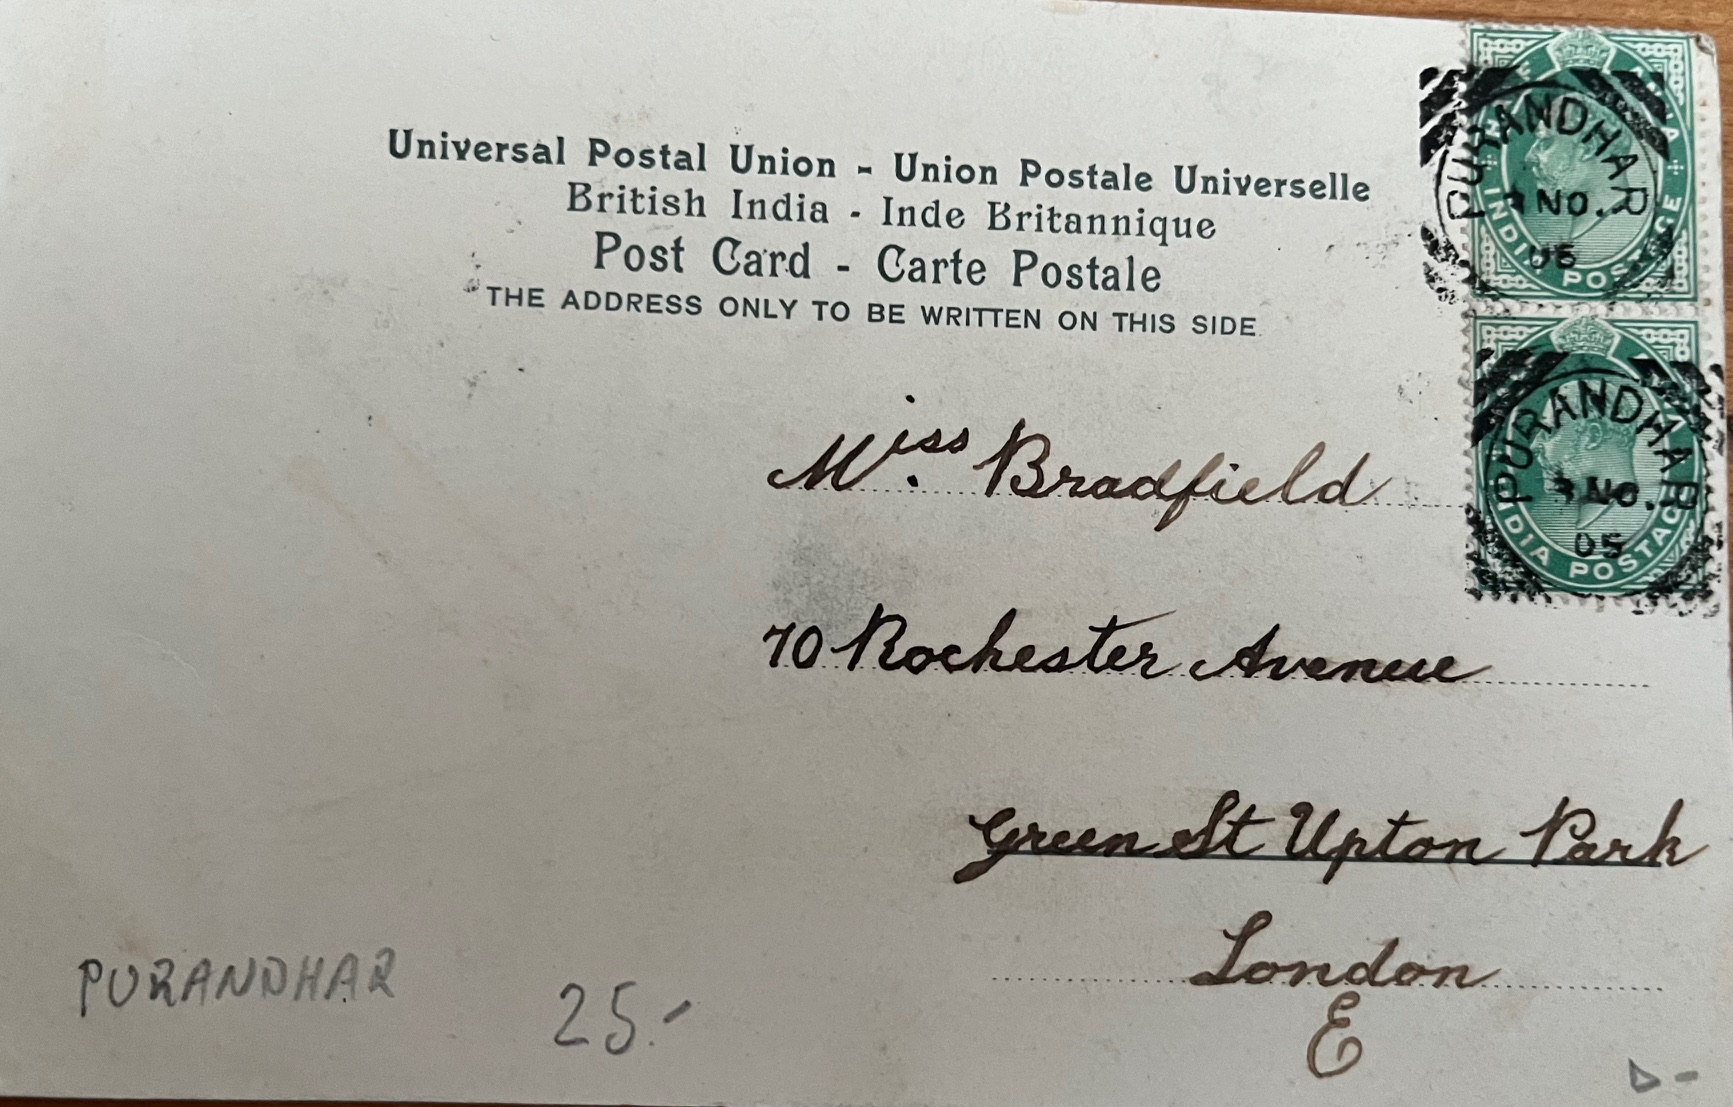 Universal Postal Union - Union Postale Universelle
British India - Inde Britannique
Post Card - Carte Postale
THE ADDRESS ONLY TO BE WRITTEN ON THIS SIDE.
PURANDHAR
NO.
05
INDIA POSTAGE
PURANDHAR
NO.
05
INDIA POSTAGE
Miss. Bradfield
70 Rochester Avenue
Green St Upton Park
London
E
PURANDHAR
25.-